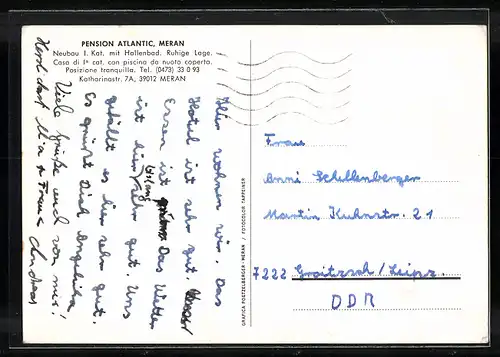 PENSION ATLANTIC, MERAN
Neubau I. Kat. mit Hallenbad. Ruhige Lage.
Casa di Iª cat. con piscina da nuoto coperta.
Posizione tranquilla. Tel. (0473) 33 0 93
Katharinastr. 7A, 39012 MERAN
Hier wohnen wir. Das
Hotel ist sehr gut.
Essen ist Das Wetter
ist hier bislang sehr gut. Uns
gefällt es hier sehr gut.
Es grüßt Dich Angelika
Viele Grüße auch von mir!
Andreas
Herzlichst Mia + Franz
GRAFICA POETZELBERGER - MERAN / FOTOCOLOR TAPPEINER
Frau
Anni Schellenberger
Martin Kuhnstr. 21
7222 Groitzsch / Leipz.
DDR